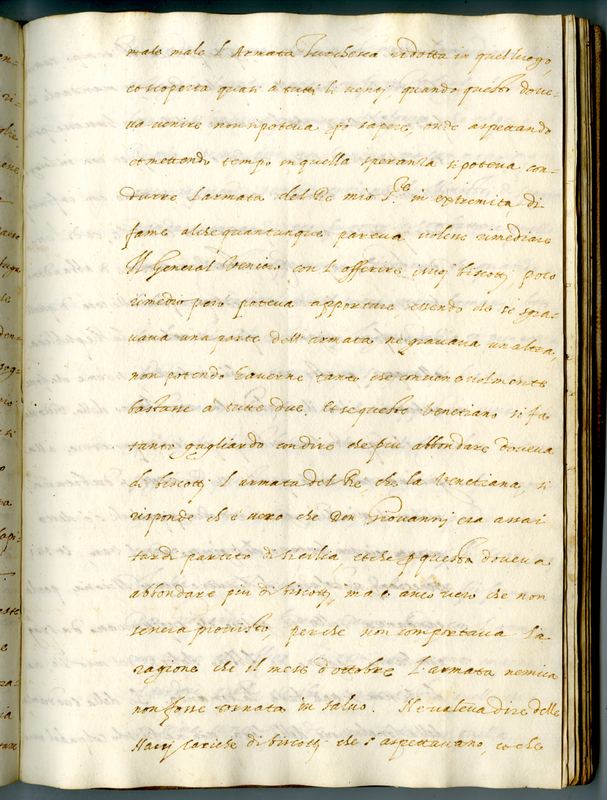 male male l'Armata Turchesca ridotta in quel luogo,
et scoperta quasi à tutti li venti quando questo doue-
ua venire non si poteua sapere, onde aspettando
et mettendo tempo in quella speranza si poteua con-
durre l'armata del Re mio S.re in estremità di
fame alche quantunque pareua volene rimediare
Il General Veniero con l'offerire i suoi biscotti, poco
rimedio però poteua apportare, essendo che se sgra-
uaua una parte dell'armata ne grauaua un'altra,
non potendo hauerne tanto che conueneuolmente
bastasse a tutte due. Et se questo Venetiano si fa
tanto gagliardo con dire che più abbondare doueua
di biscotti l'armata del Re, che la Venetiana, si
risponde ch'è vero che Don Giouannj era assai
tardi partito di Sicilia, et che p questo doueua
abbondare più di biscotti, ma è anco vero che non
sen'era prouisto, perche non comportaua la
ragione che il mese d'ottobre l'armata nemica
non fosse tornata in saluo. Ne valeua dire delle
Nauj cariche di biscotti che s'aspettauano, et che